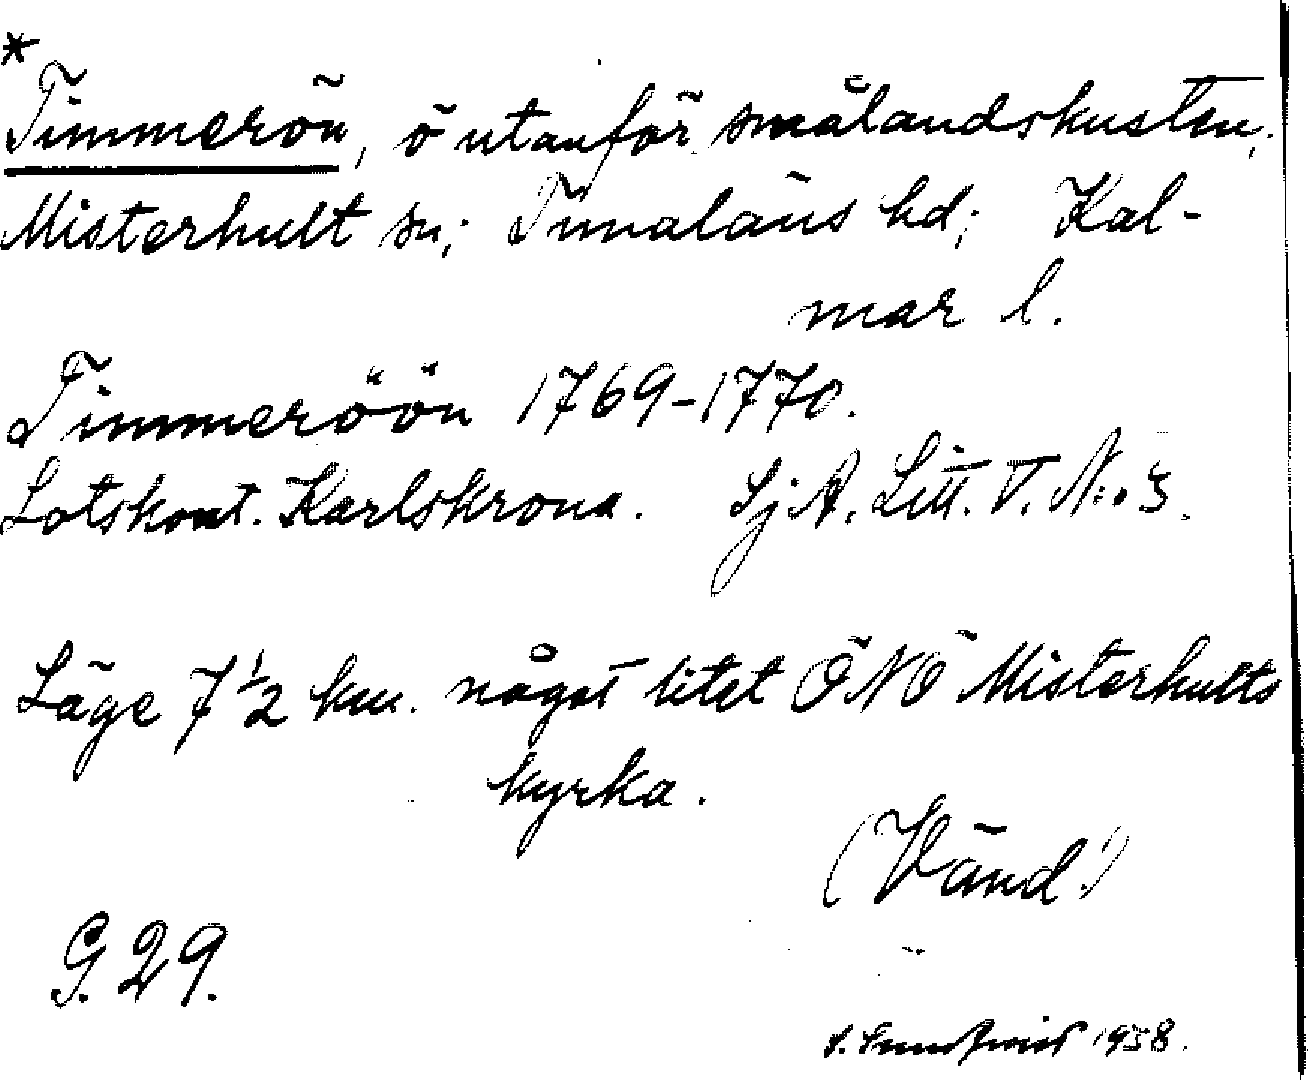 *
Timmerön, ö utanför smålandskusten,
Misterhult sn; Tunaläns hd; Kal-
mar l.
Timmeröön 1769-1770.
Lotskont. Karlskrona. Sj A. Litt. T. N:o 3.
Läge 7 1/2 km. något litet ÖNÖ Misterhults
kyrka.
(Vänd!)
G. 29.
S. 1938.